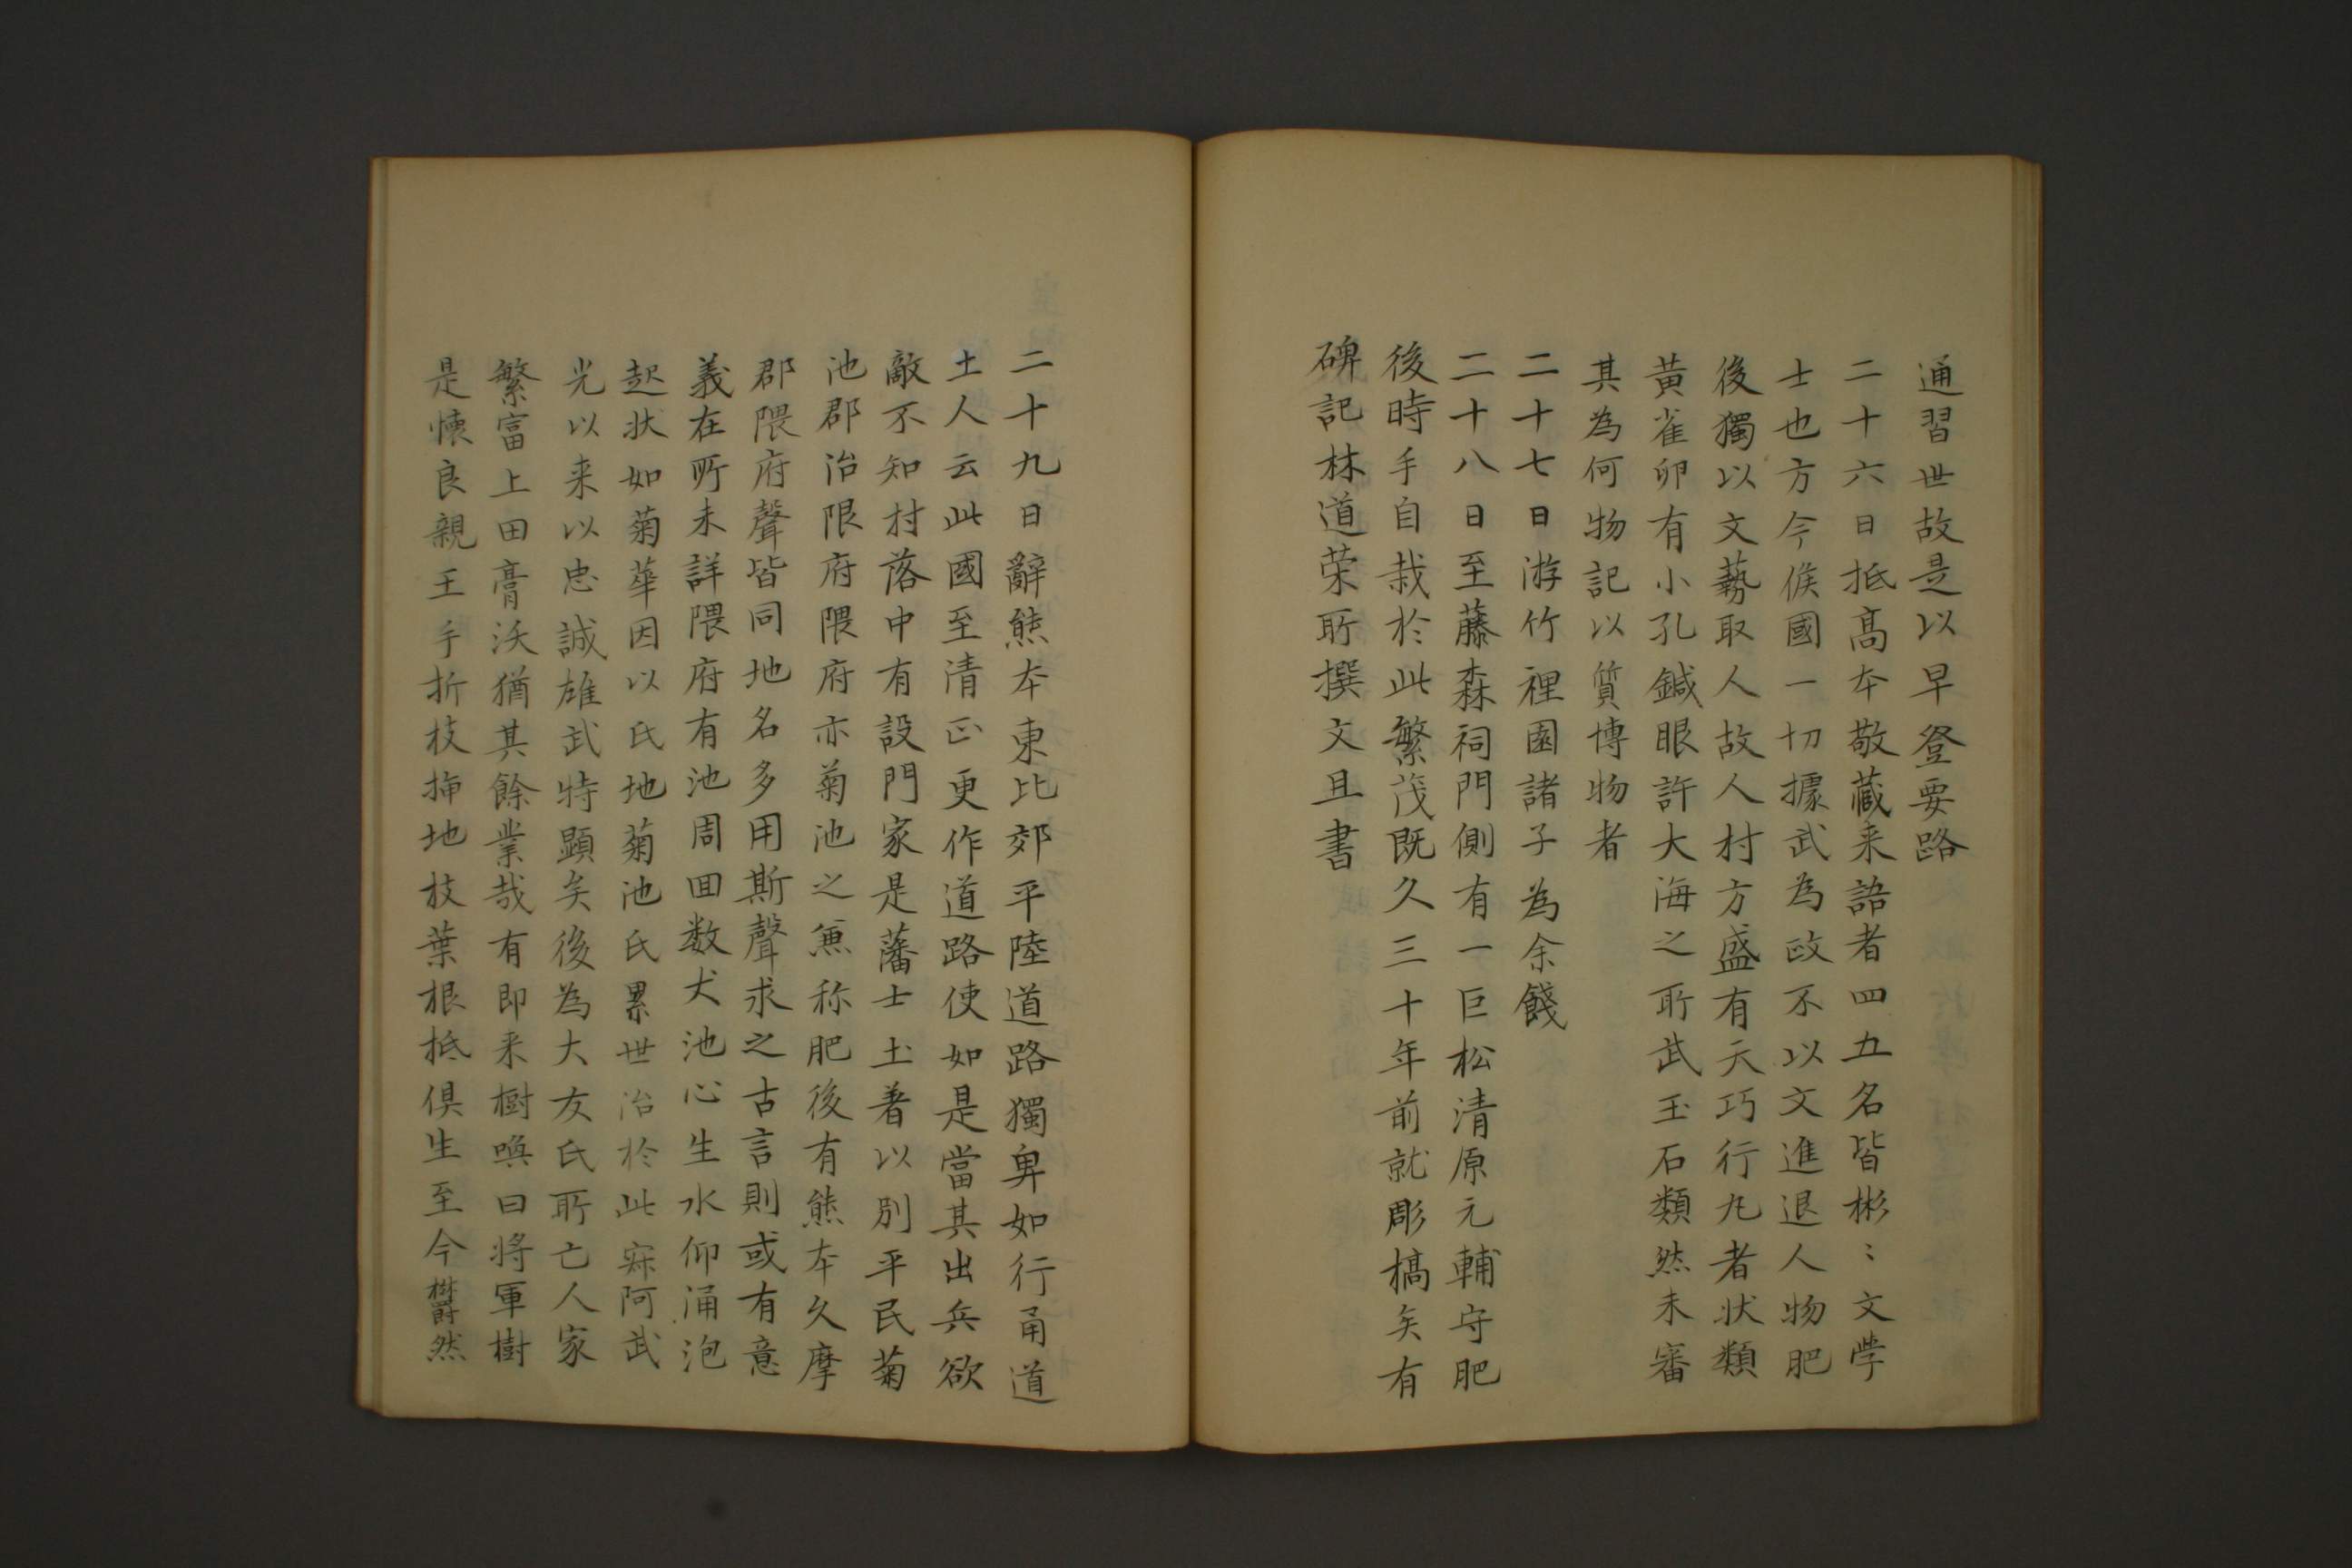 通習世故是以早登要路
二十六日抵高本敬藏来語者四五名皆彬〻文學
士也方今侯國一切據武為政不以文進退人物肥
後獨以文藝取人故人村方盛有天巧行九者状類
黃雀卵有小孔鍼眼許大海之所武玉石類然未審
其為何物記以質博物者
二十七日游竹裡園諸子為余餞
二十八日至藤森祠門側有一巨松清原元輔守肥
後時手自栽於此繁茂既久三十年前就彫槁矣有
碑記林道荣所撰文且書
二十九日辭熊本東比郊平陸道路獨卑如行甬道
土人云此國至清正更作道路使如是當其出兵欲
敵不知村落中有設門家是藩士土著以別平民菊
池郡治限府隈府亦菊池之兼称肥後有熊本久摩
郡隈府聲皆同地名多用斯聲求之古言則或有意
義在所未詳隈府有池周回数犬池心生水仰涌泡
起状如菊華因以氏地菊池氏累世治於此寀阿武
光以来以忠誠雄武特顕矣後為大友氏所亡人家
繁富上田膏沃猶其餘業哉有即来樹喚曰将軍樹
是懐良親王手折枝挿地枝葉根抵俱生至今欝然